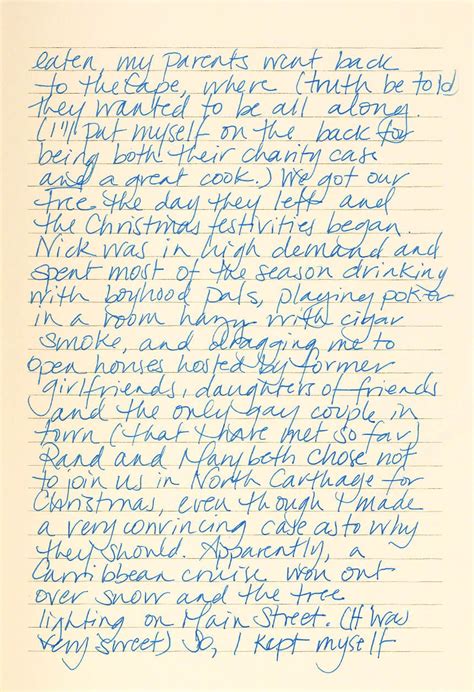 eaten, my parents went back
to the Cape, where (truth be told
they wanted to be all along.
(I'll pat myself on the back for
being both their charity case
and a great cook.) We got our
tree the day they left and
the Christmas festivities began.
Nick was in high demand and
spent most of the season drinking
with boyhood pals, playing poker
in a room hazy with cigar
smoke, and dragging me to
open houses hosted by former
girlfriends, daughters of friends
and the only gay couple in
town (that I have met so far)
Rand and Marybeth chose not
to join us in North Carthage for
Christmas, even though I made
a very convincing case as to why
they should. Apparently, a
Carribbean cruise won out
over snow and the tree
lighting on Main Street. (It was
very sweet) So, I kept myself